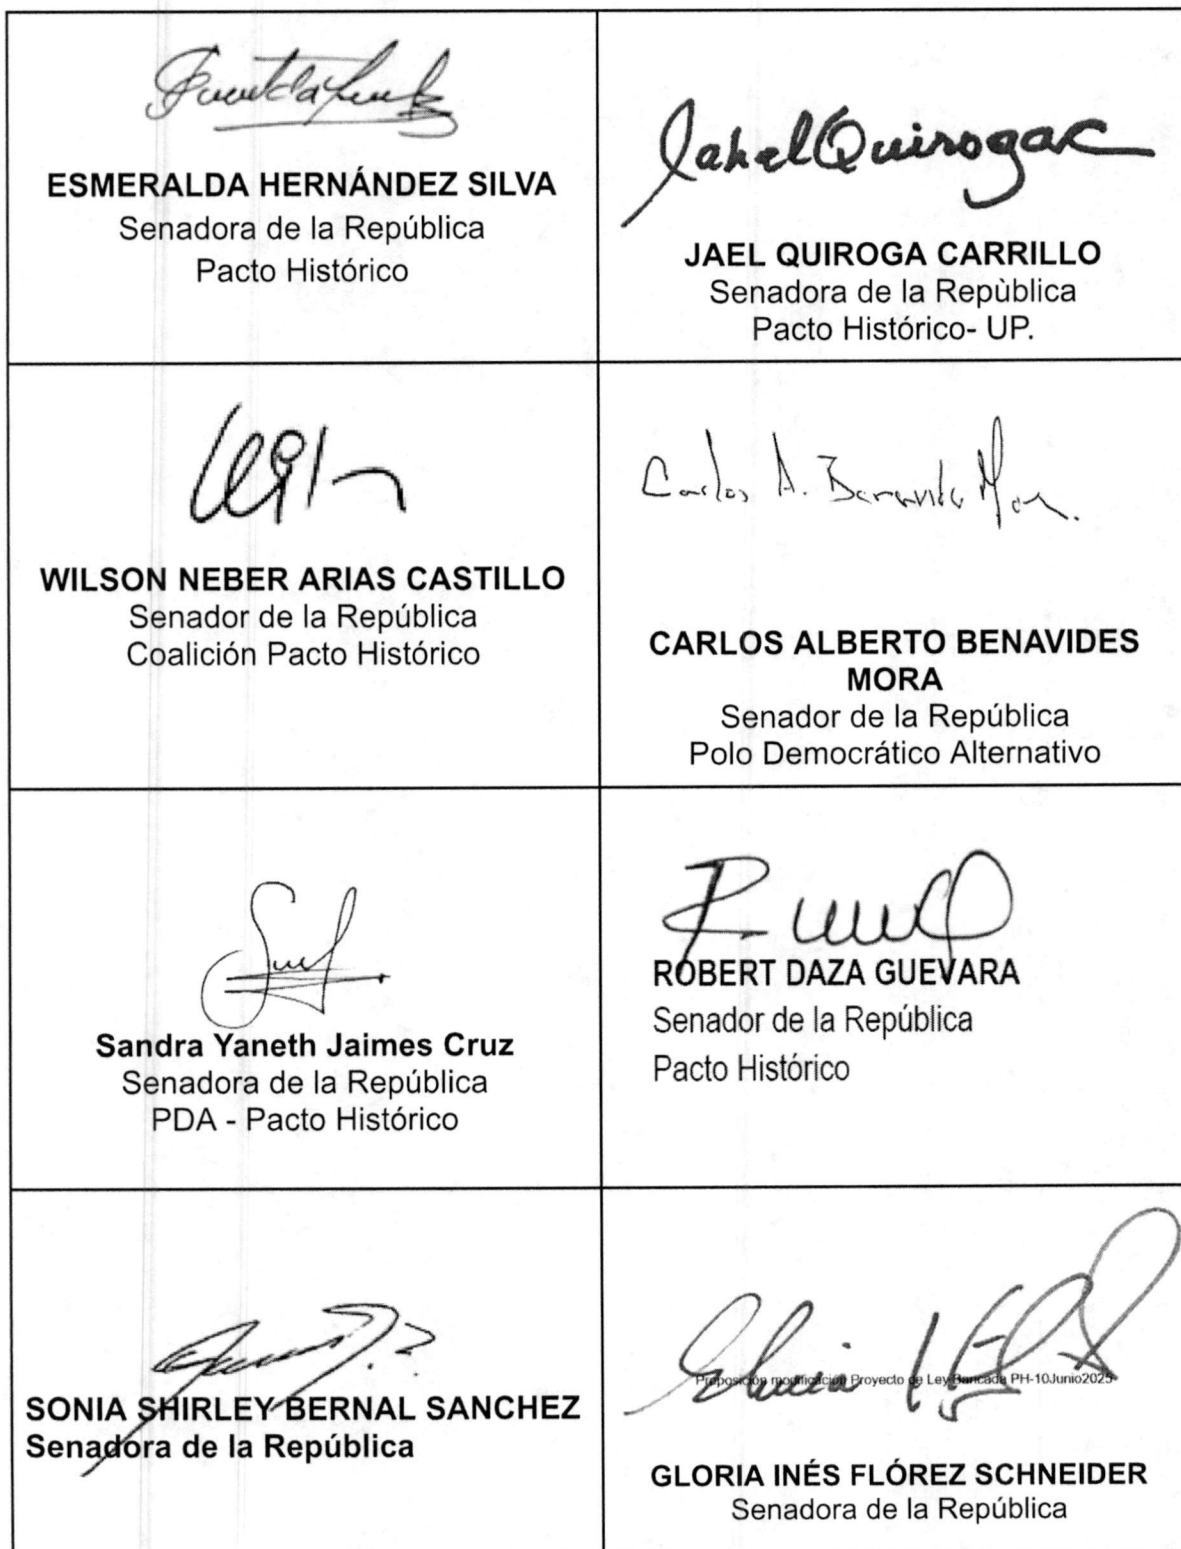 ESMERALDA HERNÁNDEZ SILVA
Senadora de la República
Pacto Histórico
JahelQuirogac
JAEL QUIROGA CARRILLO
Senadora de la Repùblica
Pacto Histórico- UP.
WILSON NEBER ARIAS CASTILLO
Senador de la República
Coalición Pacto Histórico
Carlos A. Benavides Mora.
CARLOS ALBERTO BENAVIDES
MORA
Senador de la República
Polo Democrático Alternativo
Sandra Yaneth Jaimes Cruz
Senadora de la República
PDA - Pacto Histórico
ROBERT DAZA GUEVARA
Senador de la República
Pacto Histórico
SONIA SHIRLEY BERNAL SANCHEZ
Senadora de la República
Proposición modificación Proyecto de Ley Bancada PH-10Junio2025
GLORIA INÉS FLÓREZ SCHNEIDER
Senadora de la República